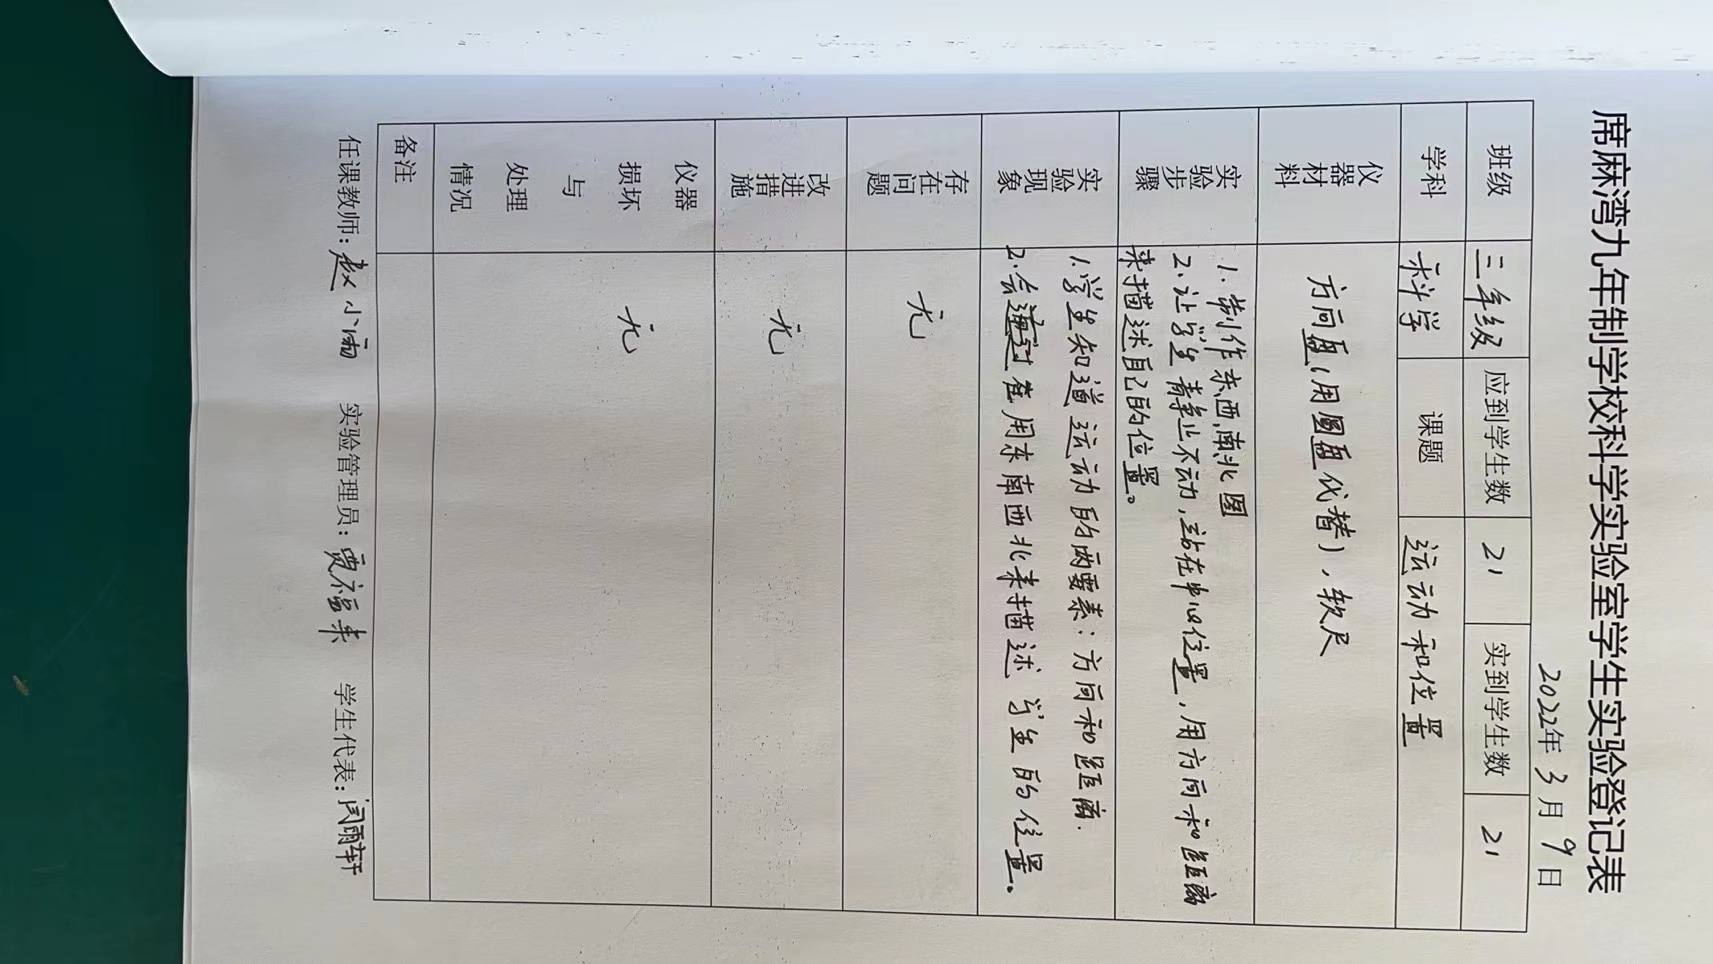 席麻湾九年制学校科学实验室学生实验登记表
2022年3月9日
班级 三年级 应到学生数 21 实到学生数 21
学科 科学 课题 运动和位置
仪器材料 方向盘(用圆盘代替),软尺
实验步骤
1.制作东西南北图
2.让学生静止不动,站在中心位置,用方向和距离
来描述自己的位置。
实验现象
1.学生知道运动的两要素:方向和距离.
2.会用东南西北来描述学生的位置。
存在问题 无
改进措施 无
仪器损坏与处理情况 无
备注
任课教师:赵小雨 实验管理员:贾福来 学生代表:闵雨轩